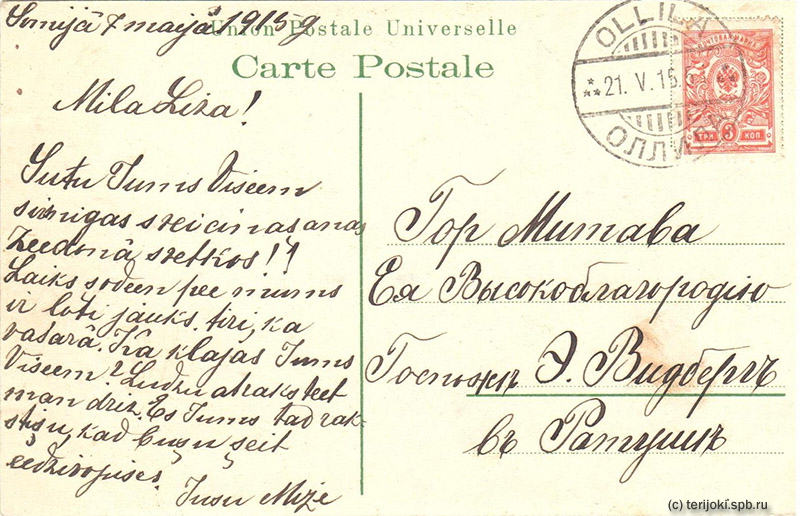 Somijā 7 maijā 1915 g
Union Postale Universelle
Carte Postale
OLLILA
21. V. 15.
ОЛЛИЛА
ТРИ 3 КОП.
Mila Liza!
Sutu Jums Viseem
sirnigas sveicinasanas
Zeedonā svetkos!!
Laiks sodeen pee mums
ir loti jauks, tiri, ka
vasarā. Ka klajas Jums
Viseem? Ludzu atraksteet
man driz. Es Jums tad rak-
stisu, kad busu šeit
eedzivojuses.
Jusu Mize
Гор Митава
Ея Высокоблагородію
Госпожѣ Э. Видбергъ
въ Ратушѣ
(c) terijoki.spb.ru